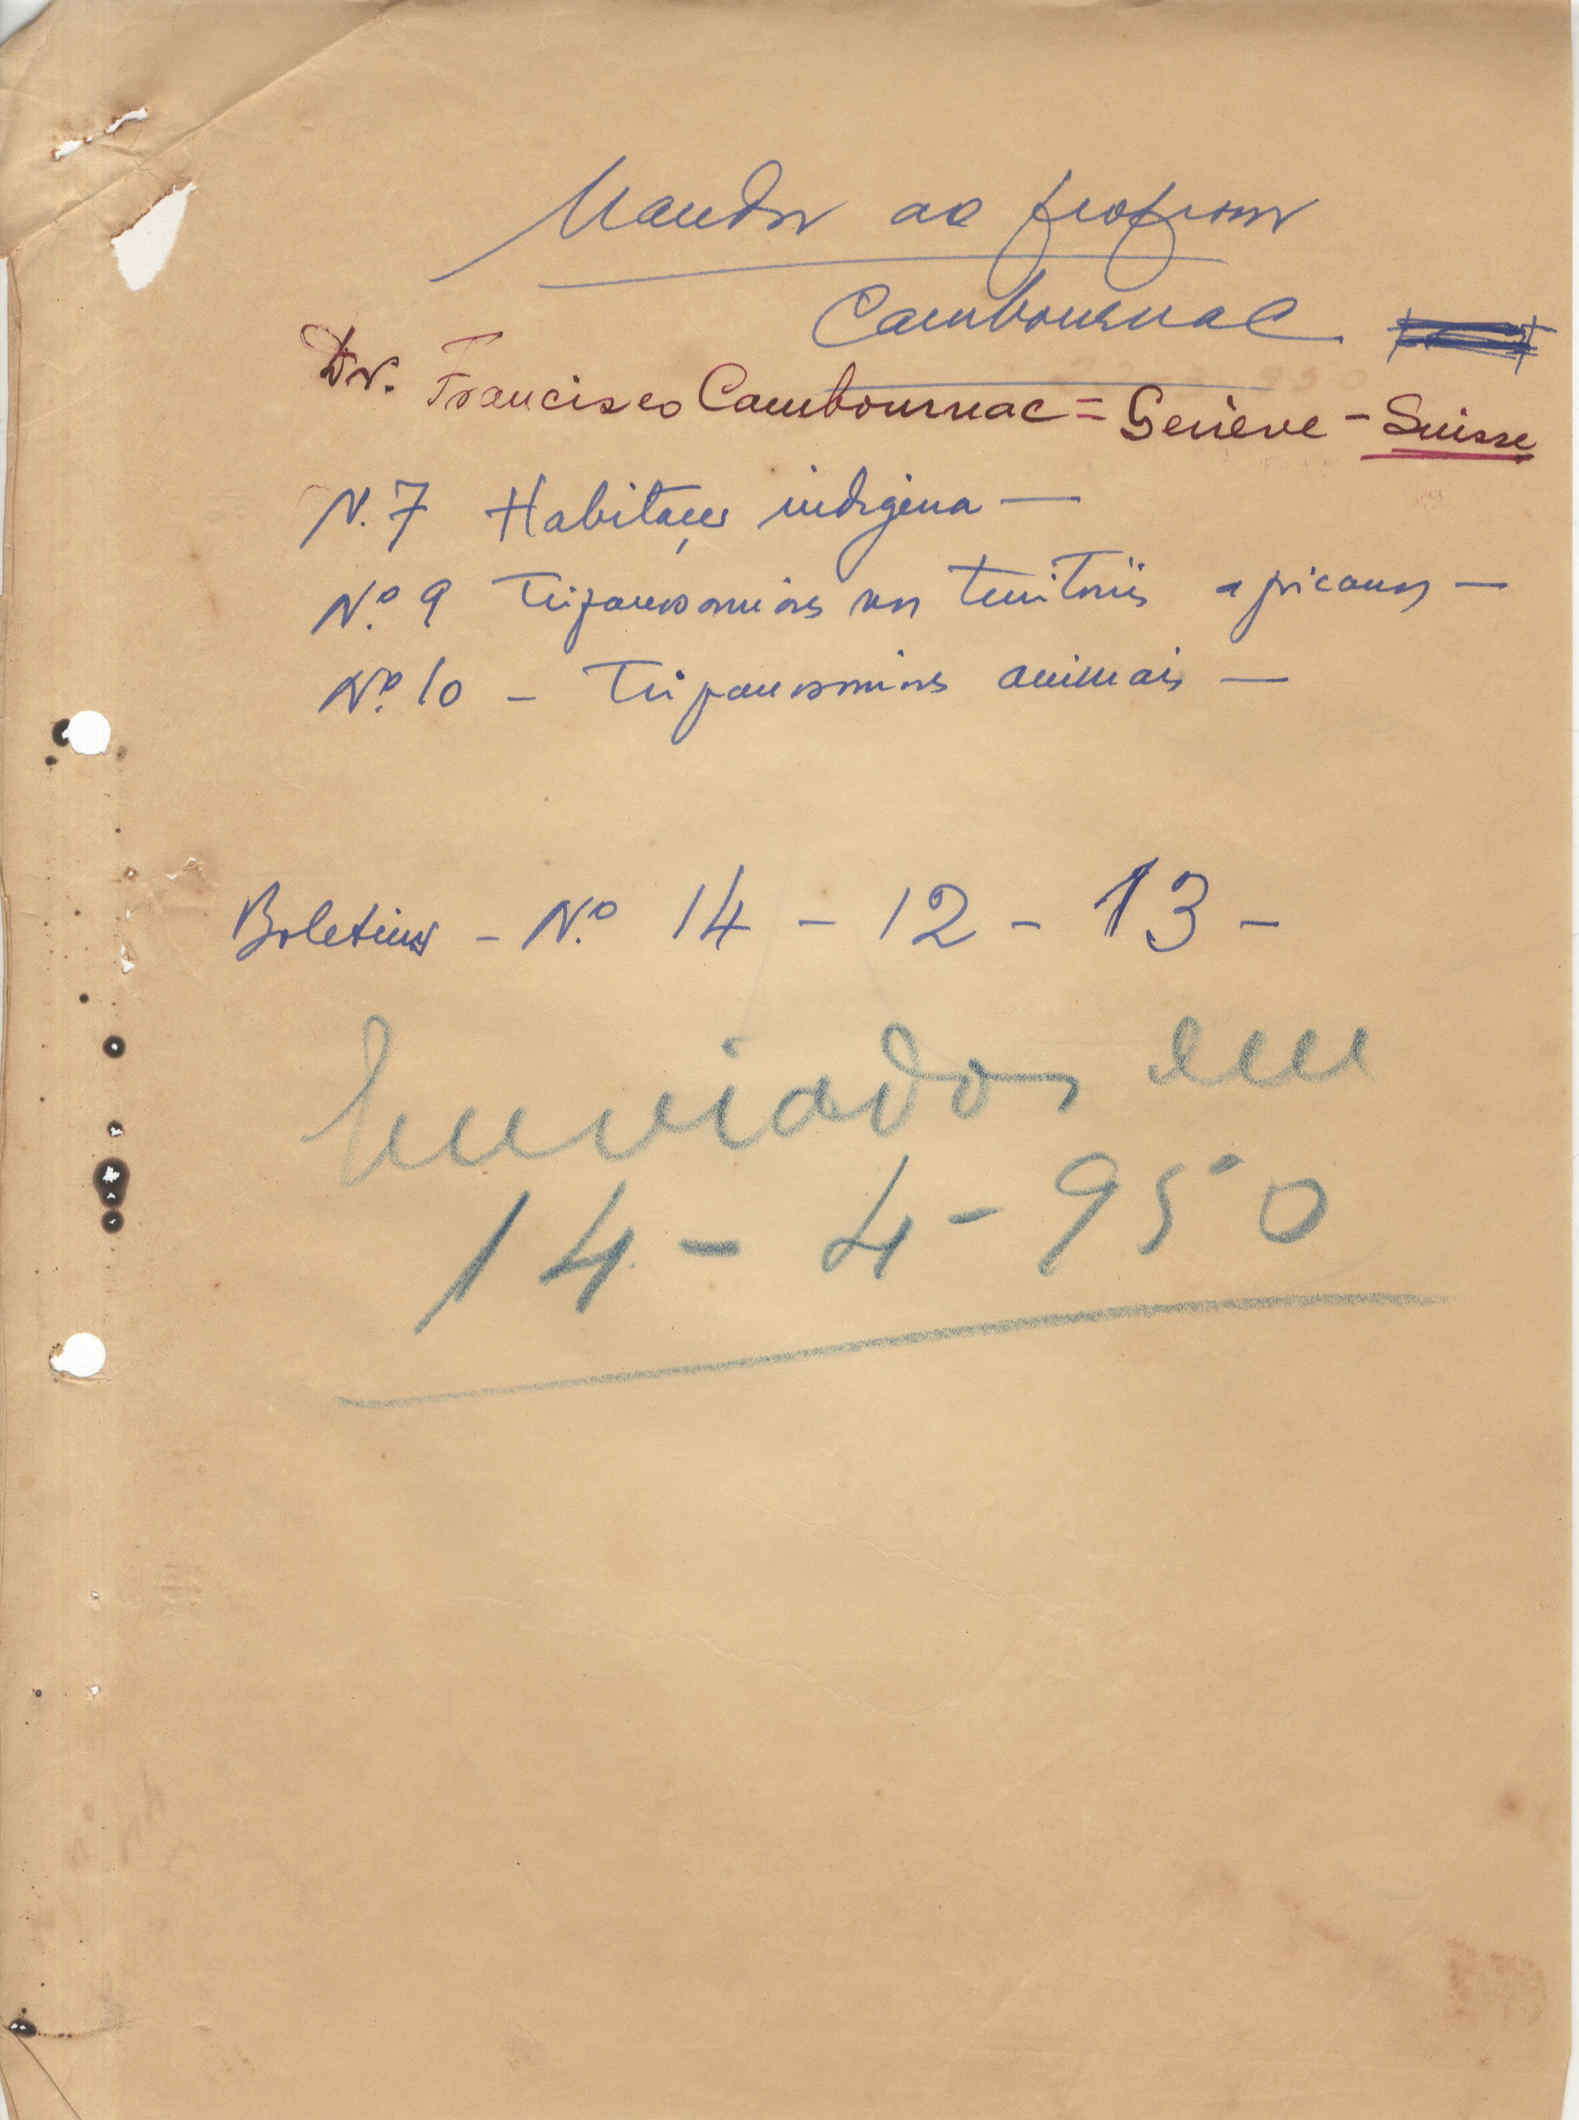 Mandar ao professor
Cambournac
Dr. Francisco Cambournac = Genève - Suisse
N. 7 Habitações indígena —
N.º 9 Tripanosomias nos territórios africanos —
N.º 10 - Tripanosomias animais —
Boletins - N.º 14 - 12 - 13 -
Enviados em
14 - 4 - 950